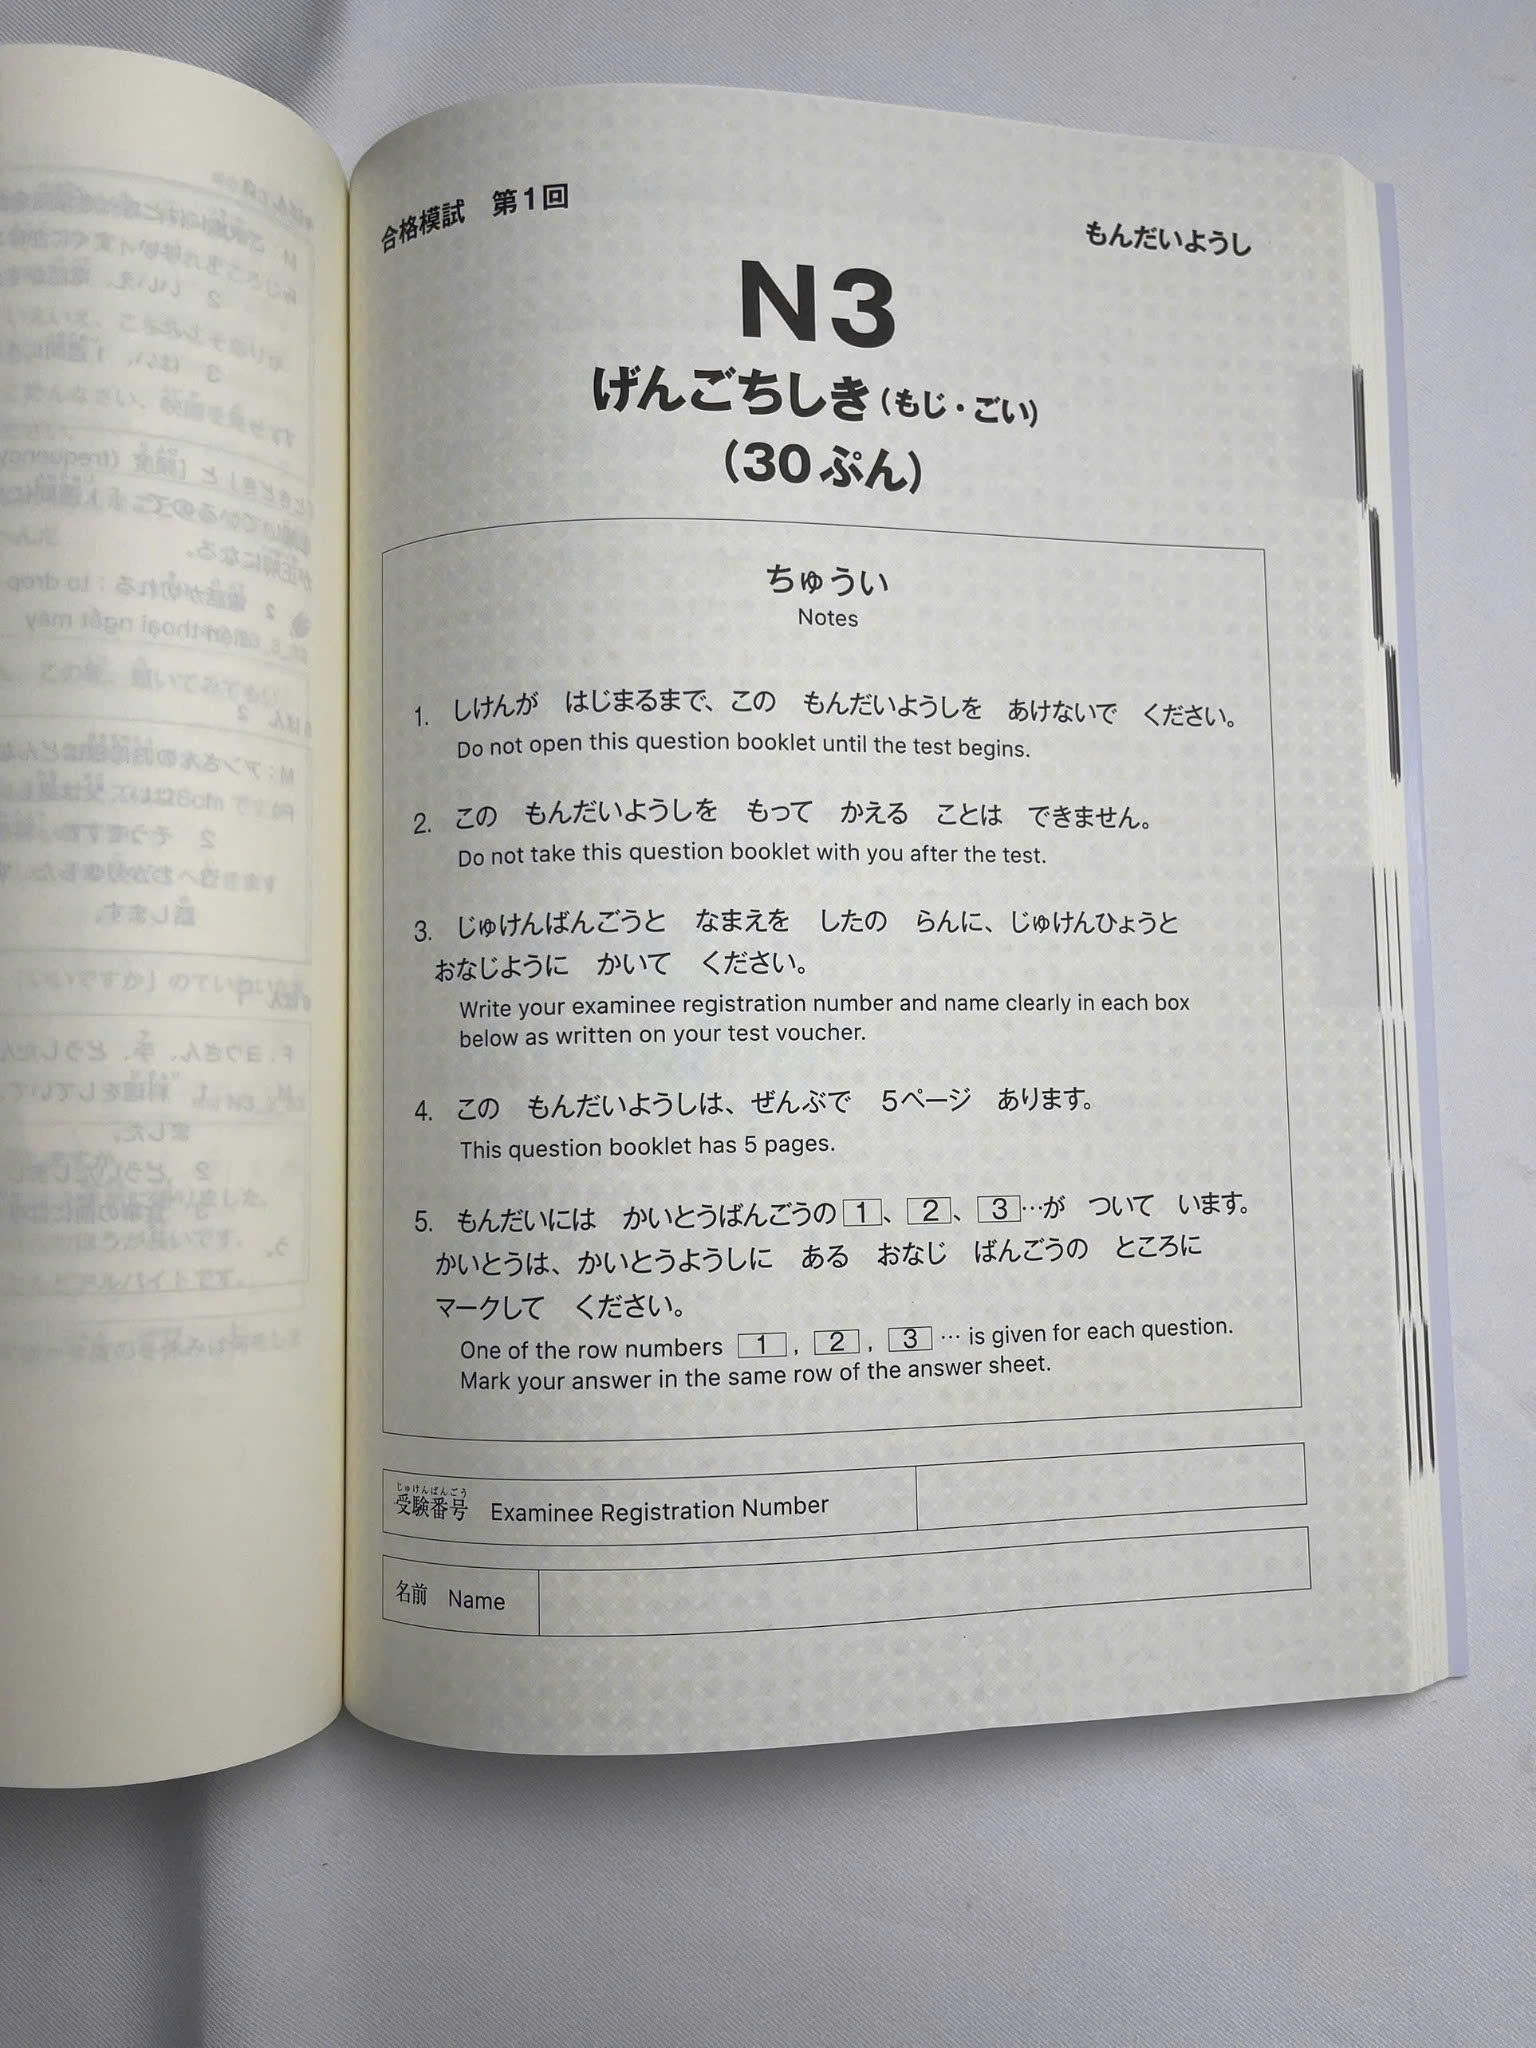 合格模試 第1回
もんだいようし
N3
げんごちしき(もじ・ごい)
(30ぷん)
ちゅうい
Notes
1. しけんが はじまるまで、この もんだいようしを あけないで ください。
Do not open this question booklet until the test begins.
2. この もんだいようしを もって かえる ことは できません。
Do not take this question booklet with you after the test.
3. じゅけんばんごうと なまえを したの らんに、じゅけんひょうと
おなじように かいて ください。
Write your examinee registration number and name clearly in each box
below as written on your test voucher.
4. この もんだいようしは、ぜんぶで 5ページ あります。
This question booklet has 5 pages.
5. もんだいには かいとうばんごうの 1、2、3…が ついて います。
かいとうは、かいとうようしに ある おなじ ばんごうの ところに
マークして ください。
One of the row numbers 1, 2, 3 … is given for each question.
Mark your answer in the same row of the answer sheet.
じゅけんばんごう
受験番号 Examinee Registration Number
名前 Name